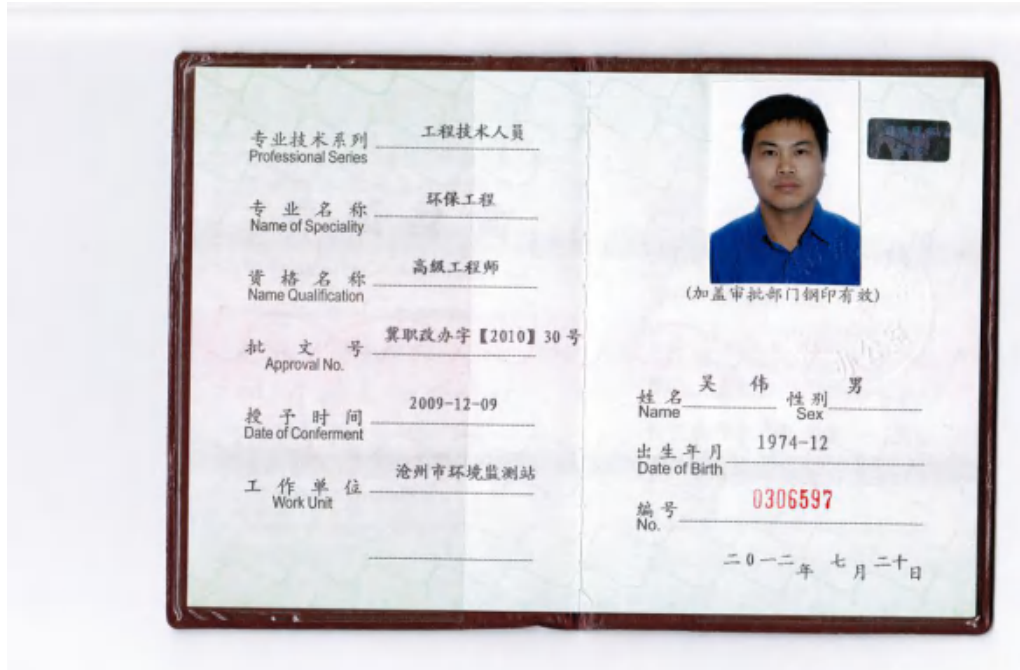 专业技术系列 工程技术人员
Professional Series
专业名称 环保工程
Name of Speciality
资格名称 高级工程师
Name Qualification
批文号 冀职改办字【2010】30号
Approval No.
授予时间 2009-12-09
Date of Conferment
工作单位 沧州市环境监测站
Work Unit
(加盖审批部门钢印有效)
姓名 吴伟 性别 男
Name Sex
出生年月 1974-12
Date of Birth
编号 0306597
No.
二〇一二年 七月二十日